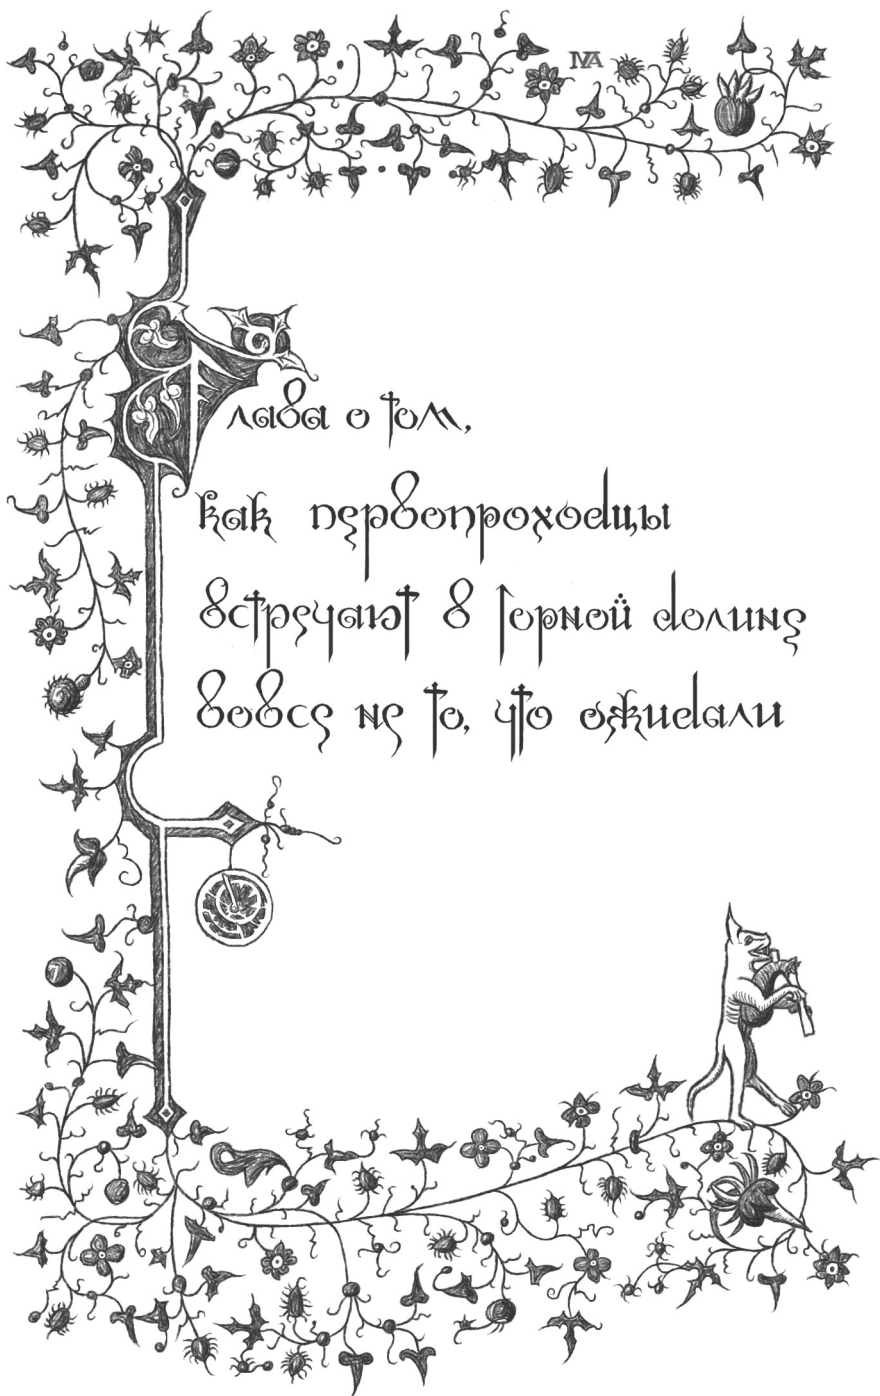 Глава о том,
как первопроходцы
встречают в горной долине
вовсе не то, что ожидали